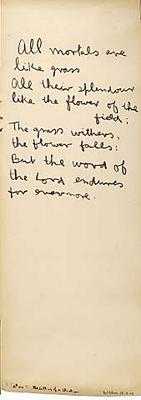 All mortals are
like grass
All their splendour
like the flower of the
field;
The grass withers,
the flower falls:
But the word of
the Lord endures
for evermore.